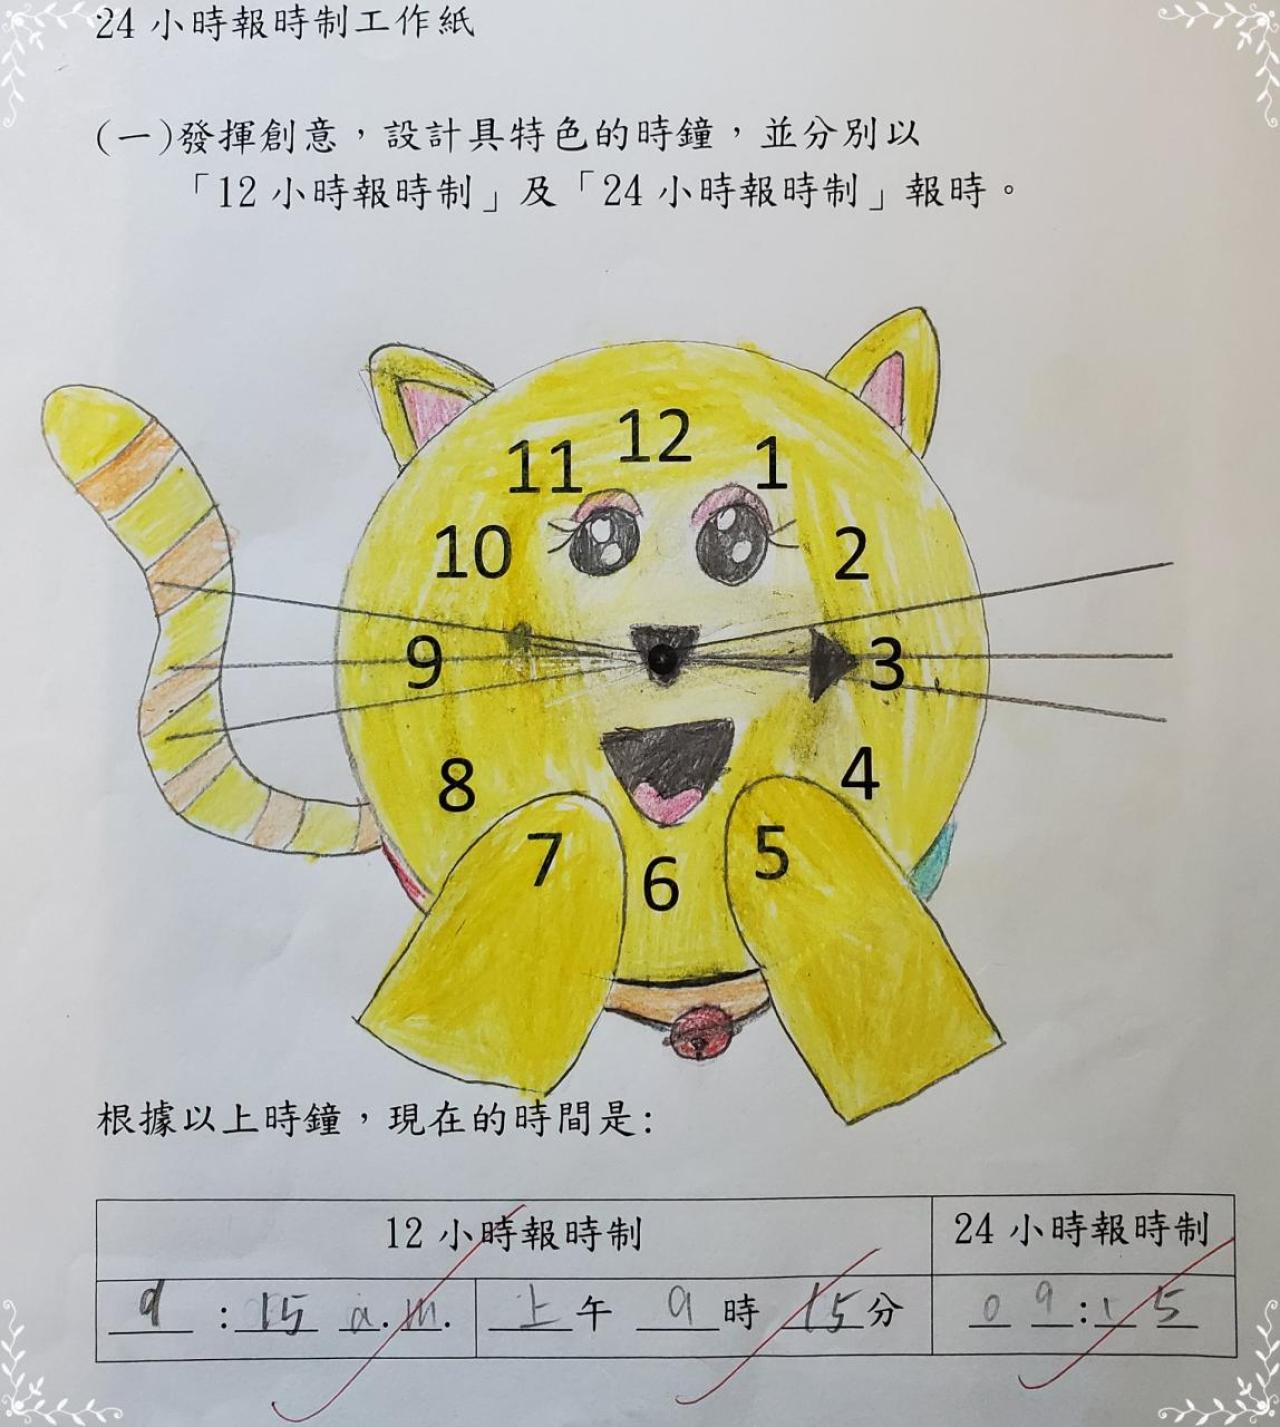 24 小時報時制工作紙
(一)發揮創意，設計具特色的時鐘，並分別以
「12 小時報時制」及「24 小時報時制」報時。
12
11 1
10 2
9 3
8 4
7 5
6
根據以上時鐘，現在的時間是:
12 小時報時制 24 小時報時制
9 : 15 a.m. 上午 9 時 15 分 0 9 : 1 5